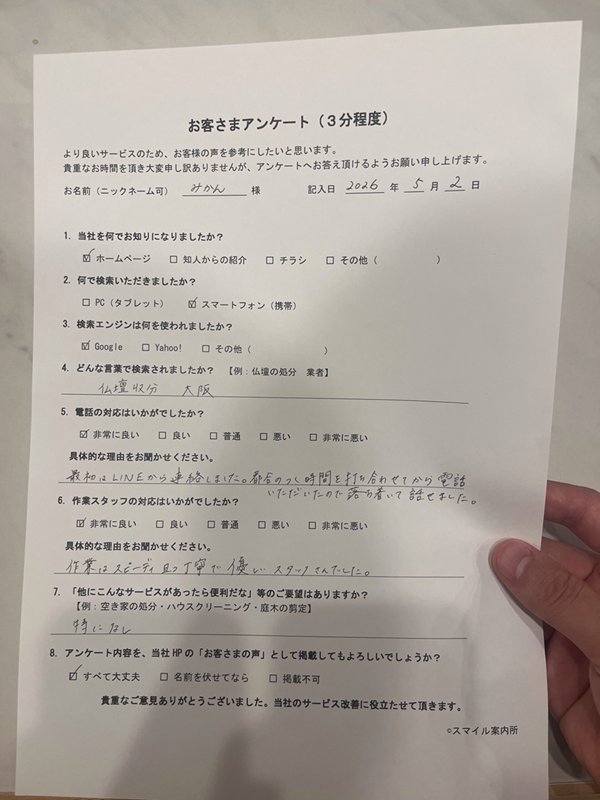 お客さまアンケート(3分程度)
より良いサービスのため、お客様の声を参考にしたいと思います。
貴重なお時間を頂き大変申し訳ありませんが、アンケートへお答え頂けるようお願い申し上げます。
お名前(ニックネーム可) みかん 様 記入日 2026 年 5 月 2 日
1. 当社を何でお知りになりましたか?
☑ ホームページ □ 知人からの紹介 □ チラシ □ その他( )
2. 何で検索いただきましたか?
□ PC(タブレット) ☑ スマートフォン(携帯)
3. 検索エンジンは何を使われましたか?
☑ Google □ Yahoo! □ その他( )
4. どんな言葉で検索されましたか? 【例:仏壇の処分 業者】
仏壇 処分 大阪
5. 電話の対応はいかがでしたか?
☑ 非常に良い □ 良い □ 普通 □ 悪い □ 非常に悪い
具体的な理由をお聞かせください。
最初はLINEから連絡しました。都合のつく時間を打ち合わせてから電話
いただいたので落ち着いて話せました。
6. 作業スタッフの対応はいかがでしたか?
☑ 非常に良い □ 良い □ 普通 □ 悪い □ 非常に悪い
具体的な理由をお聞かせください。
作業はスピーディ且つ丁寧で優しいスタッフさんでした。
7. 「他にこんなサービスがあったら便利だな」等のご要望はありますか?
【例:空き家の処分・ハウスクリーニング・庭木の剪定】
特になし
8. アンケート内容を、当社HPの「お客さまの声」として掲載してもよろしいでしょうか?
☑ すべて大丈夫 □ 名前を伏せてなら □ 掲載不可
貴重なご意見ありがとうございました。当社のサービス改善に役立たせて頂きます。
©スマイル案内所